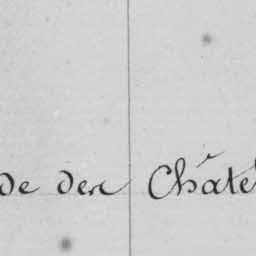 de den Châtel